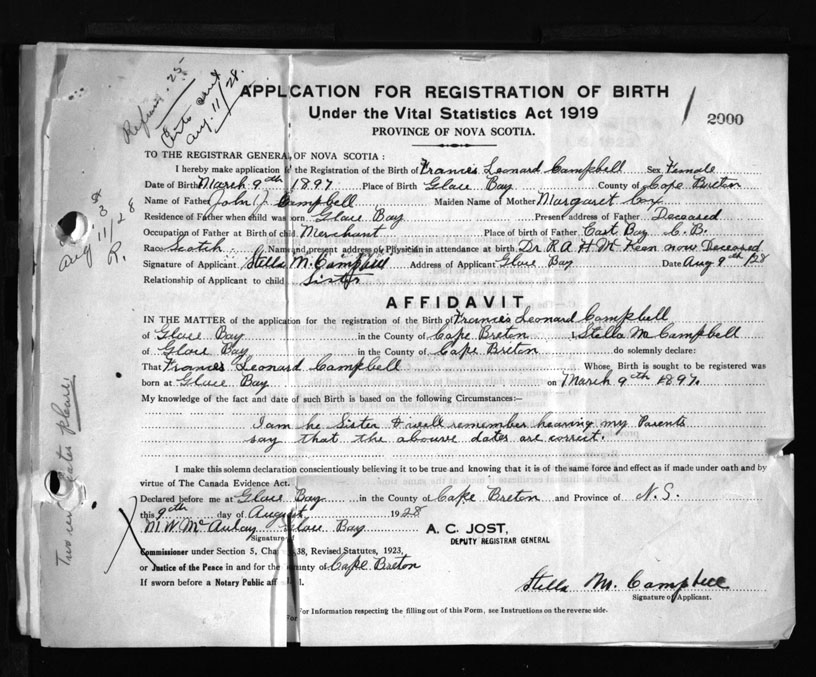 Refund .25
Crts sent
Aug. 11/28.
APPLICATION FOR REGISTRATION OF BIRTH
Under the Vital Statistics Act 1919
PROVINCE OF NOVA SCOTIA.
2900
TO THE REGISTRAR GENERAL OF NOVA SCOTIA:
I hereby make application to the Registration of the Birth of Frances Leonard Campbell Sex Female
Date of Birth March 9th 1897 Place of Birth Glace Bay County of Cape Breton
Name of Father John J Campbell Maiden Name of Mother Margaret Coy
Residence of Father when child was born Glace Bay Present address of Father Deceased
Occupation of Father at Birth of child Merchant Place of birth of Father East Bay C.B.
Race Scotch Name and present address of Physician in attendance at birth Dr R A H McKeen now Deceased
Signature of Applicant Stella M. Campbell Address of Applicant Glace Bay Date Aug 9th /28
Relationship of Applicant to child Sister
3
Aug 11/28
R.
AFFIDAVIT
IN THE MATTER of the application for the registration of the Birth of Frances Leonard Campbell
of Glace Bay in the County of Cape Breton I Stella M Campbell
of Glace Bay in the County of Cape Breton do solemnly declare:
That Frances Leonard Campbell Whose Birth is sought to be registered was
born at Glace Bay on March 9th 1897.
My knowledge of the fact and date of such Birth is based on the following Circumstances:—
I am he Sister & well remember hearing my Parents
say that the abouve dates are correct.
I make this solemn declaration conscientiously believing it to be true and knowing that it is of the same force and effect as if made under oath and by
virtue of The Canada Evidence Act.
Declared before me at Glace Bay in the County of Cape Breton and Province of N.S.
this 9th day of August 1928
M. W. McAulay Glace Bay
Signature of
A. C. JOST,
DEPUTY REGISTRAR GENERAL
Commissioner under Section 5, Cha 38, Revised Statutes, 1923,
or Justice of the Peace in and for the County of Cape Breton
If sworn before a Notary Public aff l.
Stella M. Campbell
Signature of Applicant.
For Information respecting the filling out of this Form, see Instructions on the reverse side.
For
Two certificates please